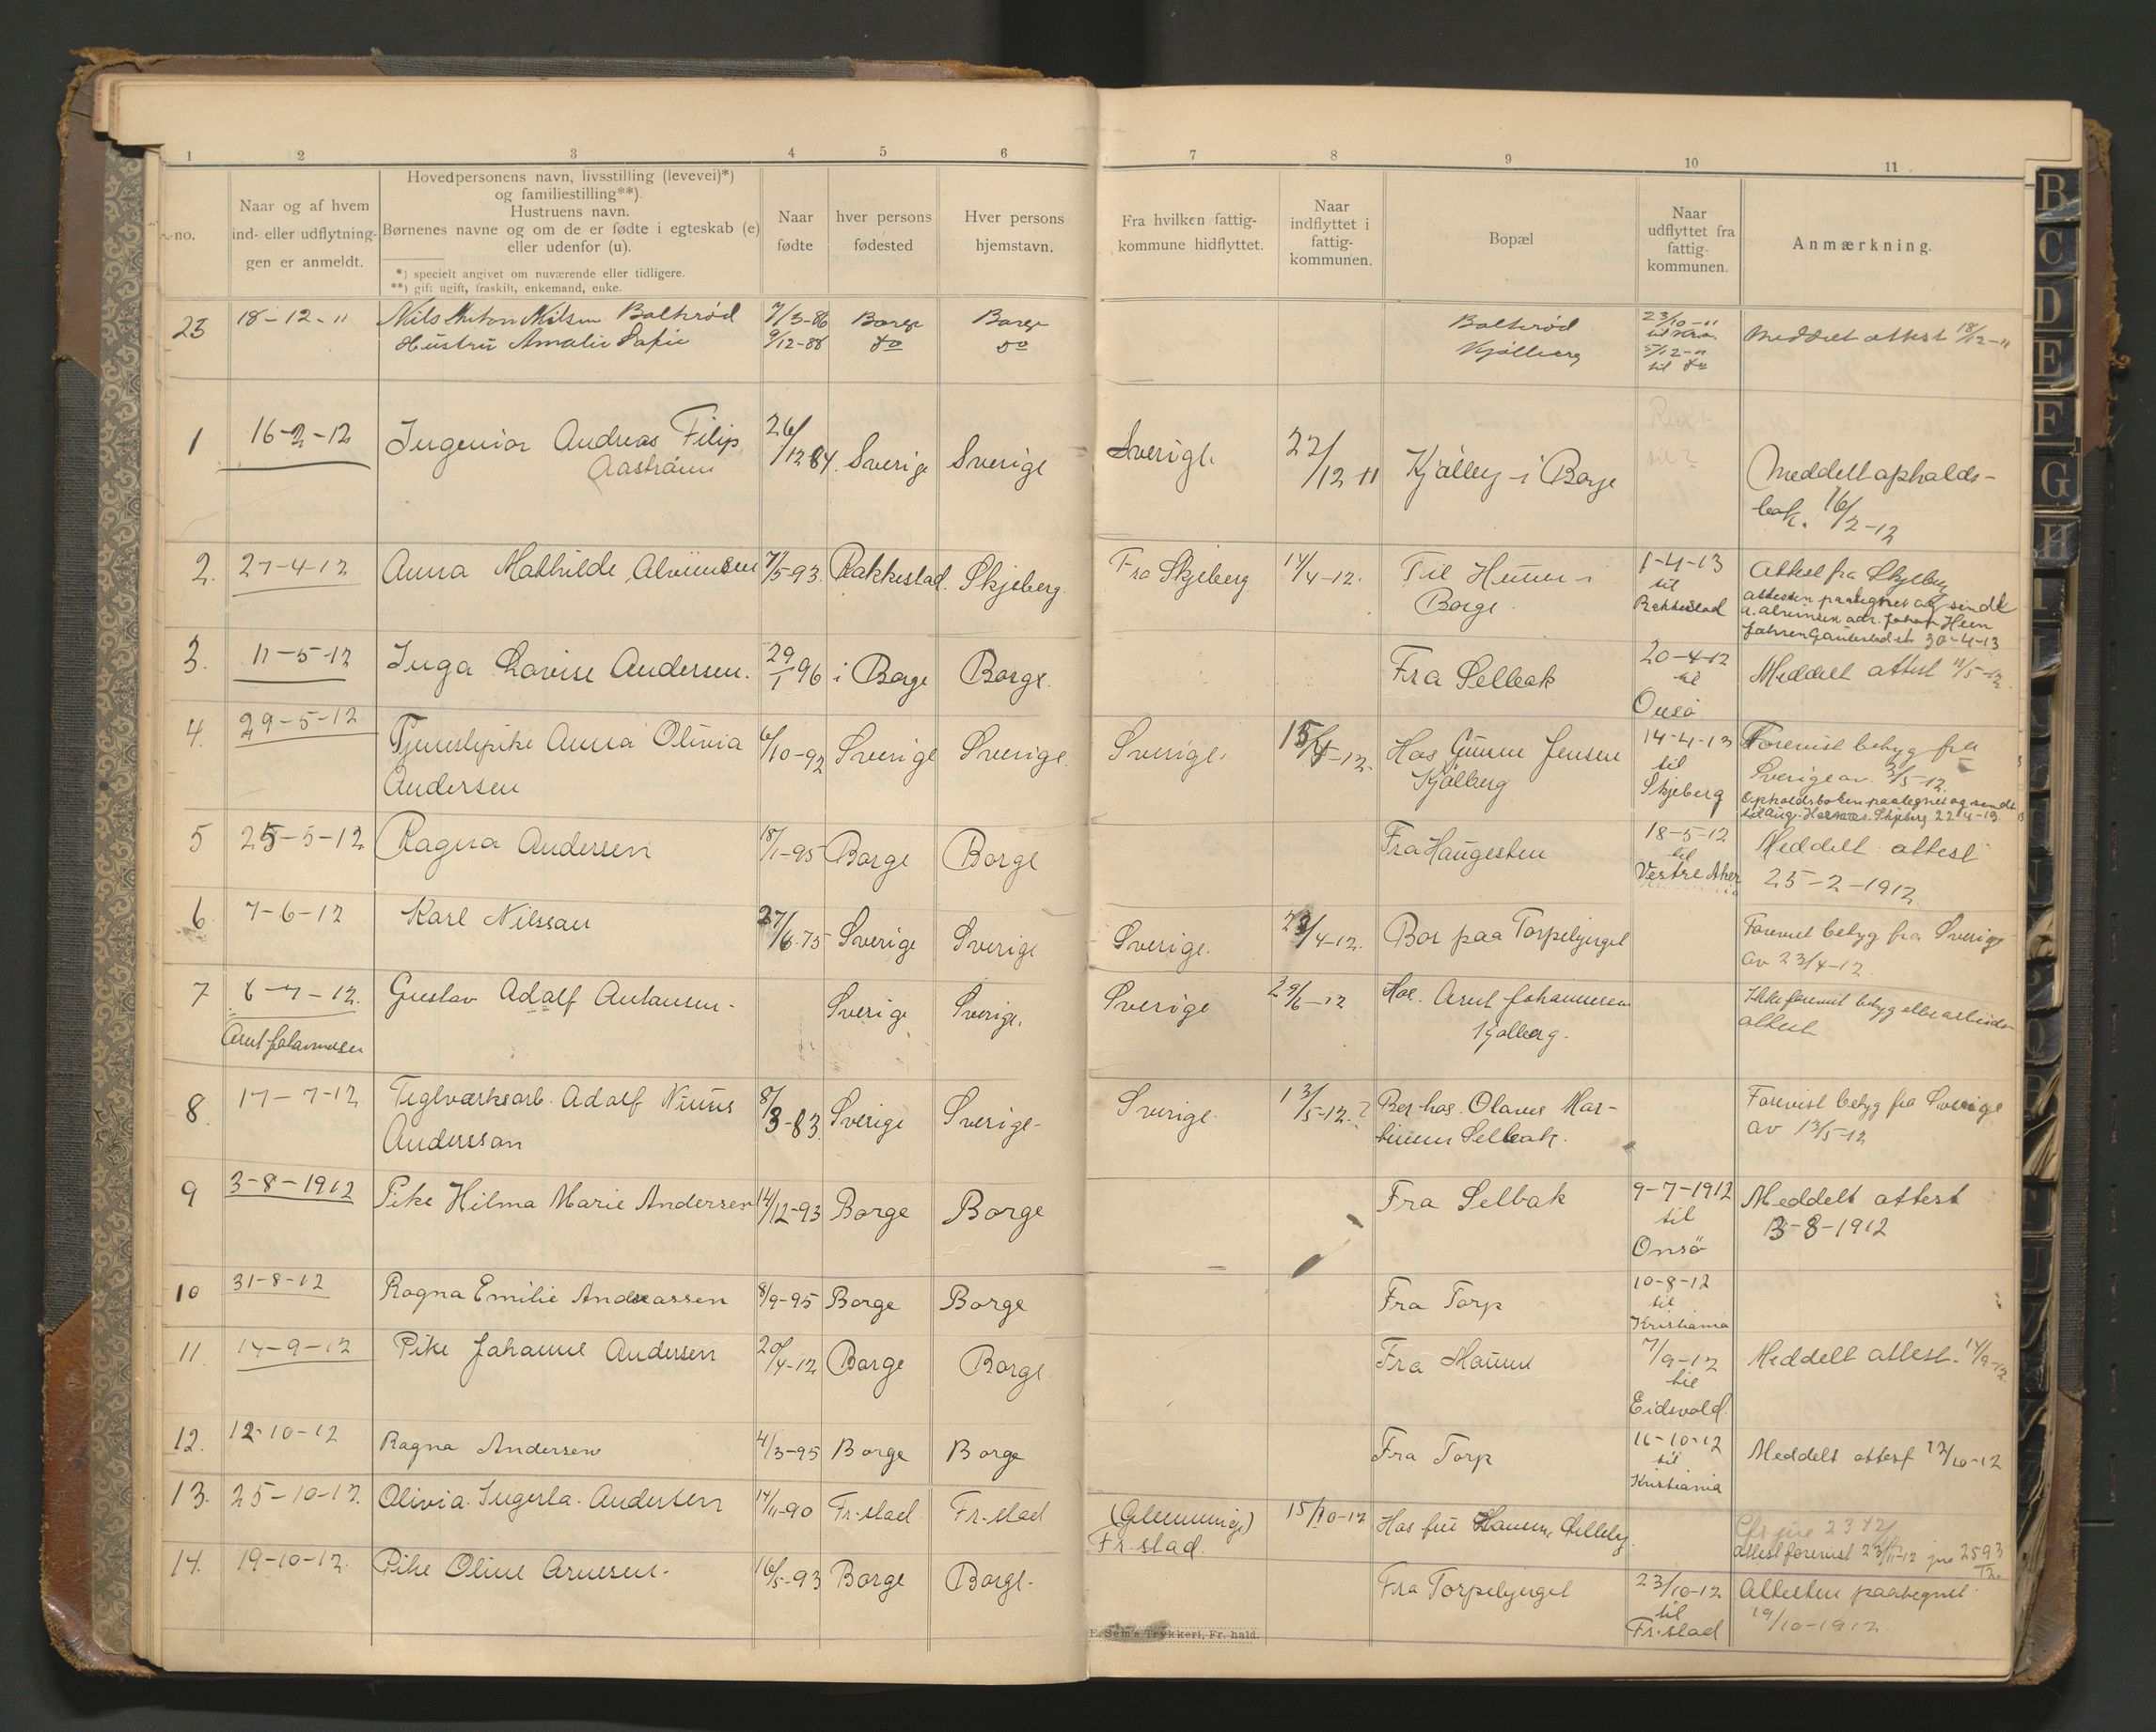 1 2 3 4 5 6 7 8 9 10 11
-no.
Naar og af hvem
ind- eller udflytnin-
gen er anmeldt.
Hovedpersonens navn, livsstilling (levevei)*)
og familiestilling**).
Hustruens navn.
Børnenes navne og om de er fødte i egteskab (e)
eller udenfor (u).
*) specielt angivet om nuværende eller tidligere.
**) gift ugift, fraskilt, enkemand, enke.
Naar
fødte
hver persons
fødested
Hver persons
hjemstavn.
Fra hvilken fattig-
kommune hidflyttet.
Naar
indflyttet i
fattig-
kommunen.
Bopæl
Naar
udflyttet fra
fattig-
kommunen.
Anmærkning.
23 18-12-11 Nils Anton Nilsen Bolterød 7/3-86 Borge Borge Bolterød 23/10-11 Meddelt attest 18/12-11
Hustru Amalie Sofie 9/12-88 do do Kjølberg til Kra.
5/12-11
til do
1 16-2-12 Ingeniør Andreas Filip 26/12 84. Sverige Sverige Sverige 22/12 11 Kjølberg i Borge Meddelt opholds-
Aastrøm bok. 16/2-12
2. 27-4-12 Anna Mathilde Alvimsen 7/5-93. Rakkestad. Skjeberg. Fra Skjeberg 14/4-12. Til Hunn i 1-4-13 Attest fra Skjeberg
Borge. til
Rakkestad
attesten paategnet og sendt
a. Alvimsen adr. Johan Heen
30-4-13
3. 11-5-12 Inga Lovise Andersen. 29/1 96 i Borge Borge. Fra Selbak 20-4-12 Meddelt attest 11/5-12.
til
Onsø
4. 29-5-12 Tjenestepike Anna Olivia 6/10-92 Sverige Sverige. Sverige. 15/4-12. Hos Gunnar Jensen 14-4-13 Forevist betyg fra
Andersen Kjølberg til Sverige av. 3/5-12.
Skjeberg Opholdsboken paategnet og sendt
til Aug. Hornæs. Skjeberg 22-4-13.
5 25-5-12 Ragna Andersen 18/1-95 Borge Borge Fra Haugesten 18-5-12 Meddelt attest
til 25-2-1912.
Vestre Aker
6 7-6-12 Karl Nilssan 27/6-75 Sverige Sverige Sverige. 23/4-12. Bor paa Torpebjerget Forevist betyg fra Sverige
av 23/4-12
7 6-7-12. Gustav Adolf Antonsen. Sverige Sverige. Sverige 29/6-12 Hos. Arnt Johannesen Ikke forevist betyg eller arbeids-
Arnt Johannesen Kjølberg. attest
8. 17-7-12 Teglværksarb. Adolf Ninus 8/3-83. Sverige Sverige. Sverige. 13/5-12.? Bor hos. Olaves Mar- Forevist betyg fra Sverige
Anderssan tinsen Selbak. av 13/5-12
9 3-8-1912 Pike Hilma Marie Andersen 14/12-93 Borge Borge Fra Selbak 9-7-1912 Meddelt attest
til 3-8-1912
Onsø
10 31-8-12 Ragna Emilie Andreassen 8/9-95 Borge Borge Fra Torp 10-8-12
til
Kristiania
11. 14-9-12 Pike Johanne Andersen 20/4-12 Borge Borge Fra Hauen 7/9-12 Meddelt attest. 14/9-12.
til
Eidsvold.
12. 12-10-12 Ragna Andersen 4/3-95 Borge Borge Fra Torp 16-10-12 Meddelt attest 12/10-12
til
Kristiania
13. 25-10-12. Olivia. Ingerla. Andersen 14/11-90 Fr.stad Fr.stad (Glemminge) 15/10-12 Hos fru Hansen, Lilleby.
Fr.stad. attest forevist 23/11-12 jno 2593
14. 19-10-12. Pike Oline Arnesen. 16/5-93 Borge Borge. Fra Torpebjerget 23/10-12 Attesten paategnet
til 19/10-1912.
Fr.stad
E. Sem's Trykkeri, Fr. hald.
B
C
D
E
F
G
H